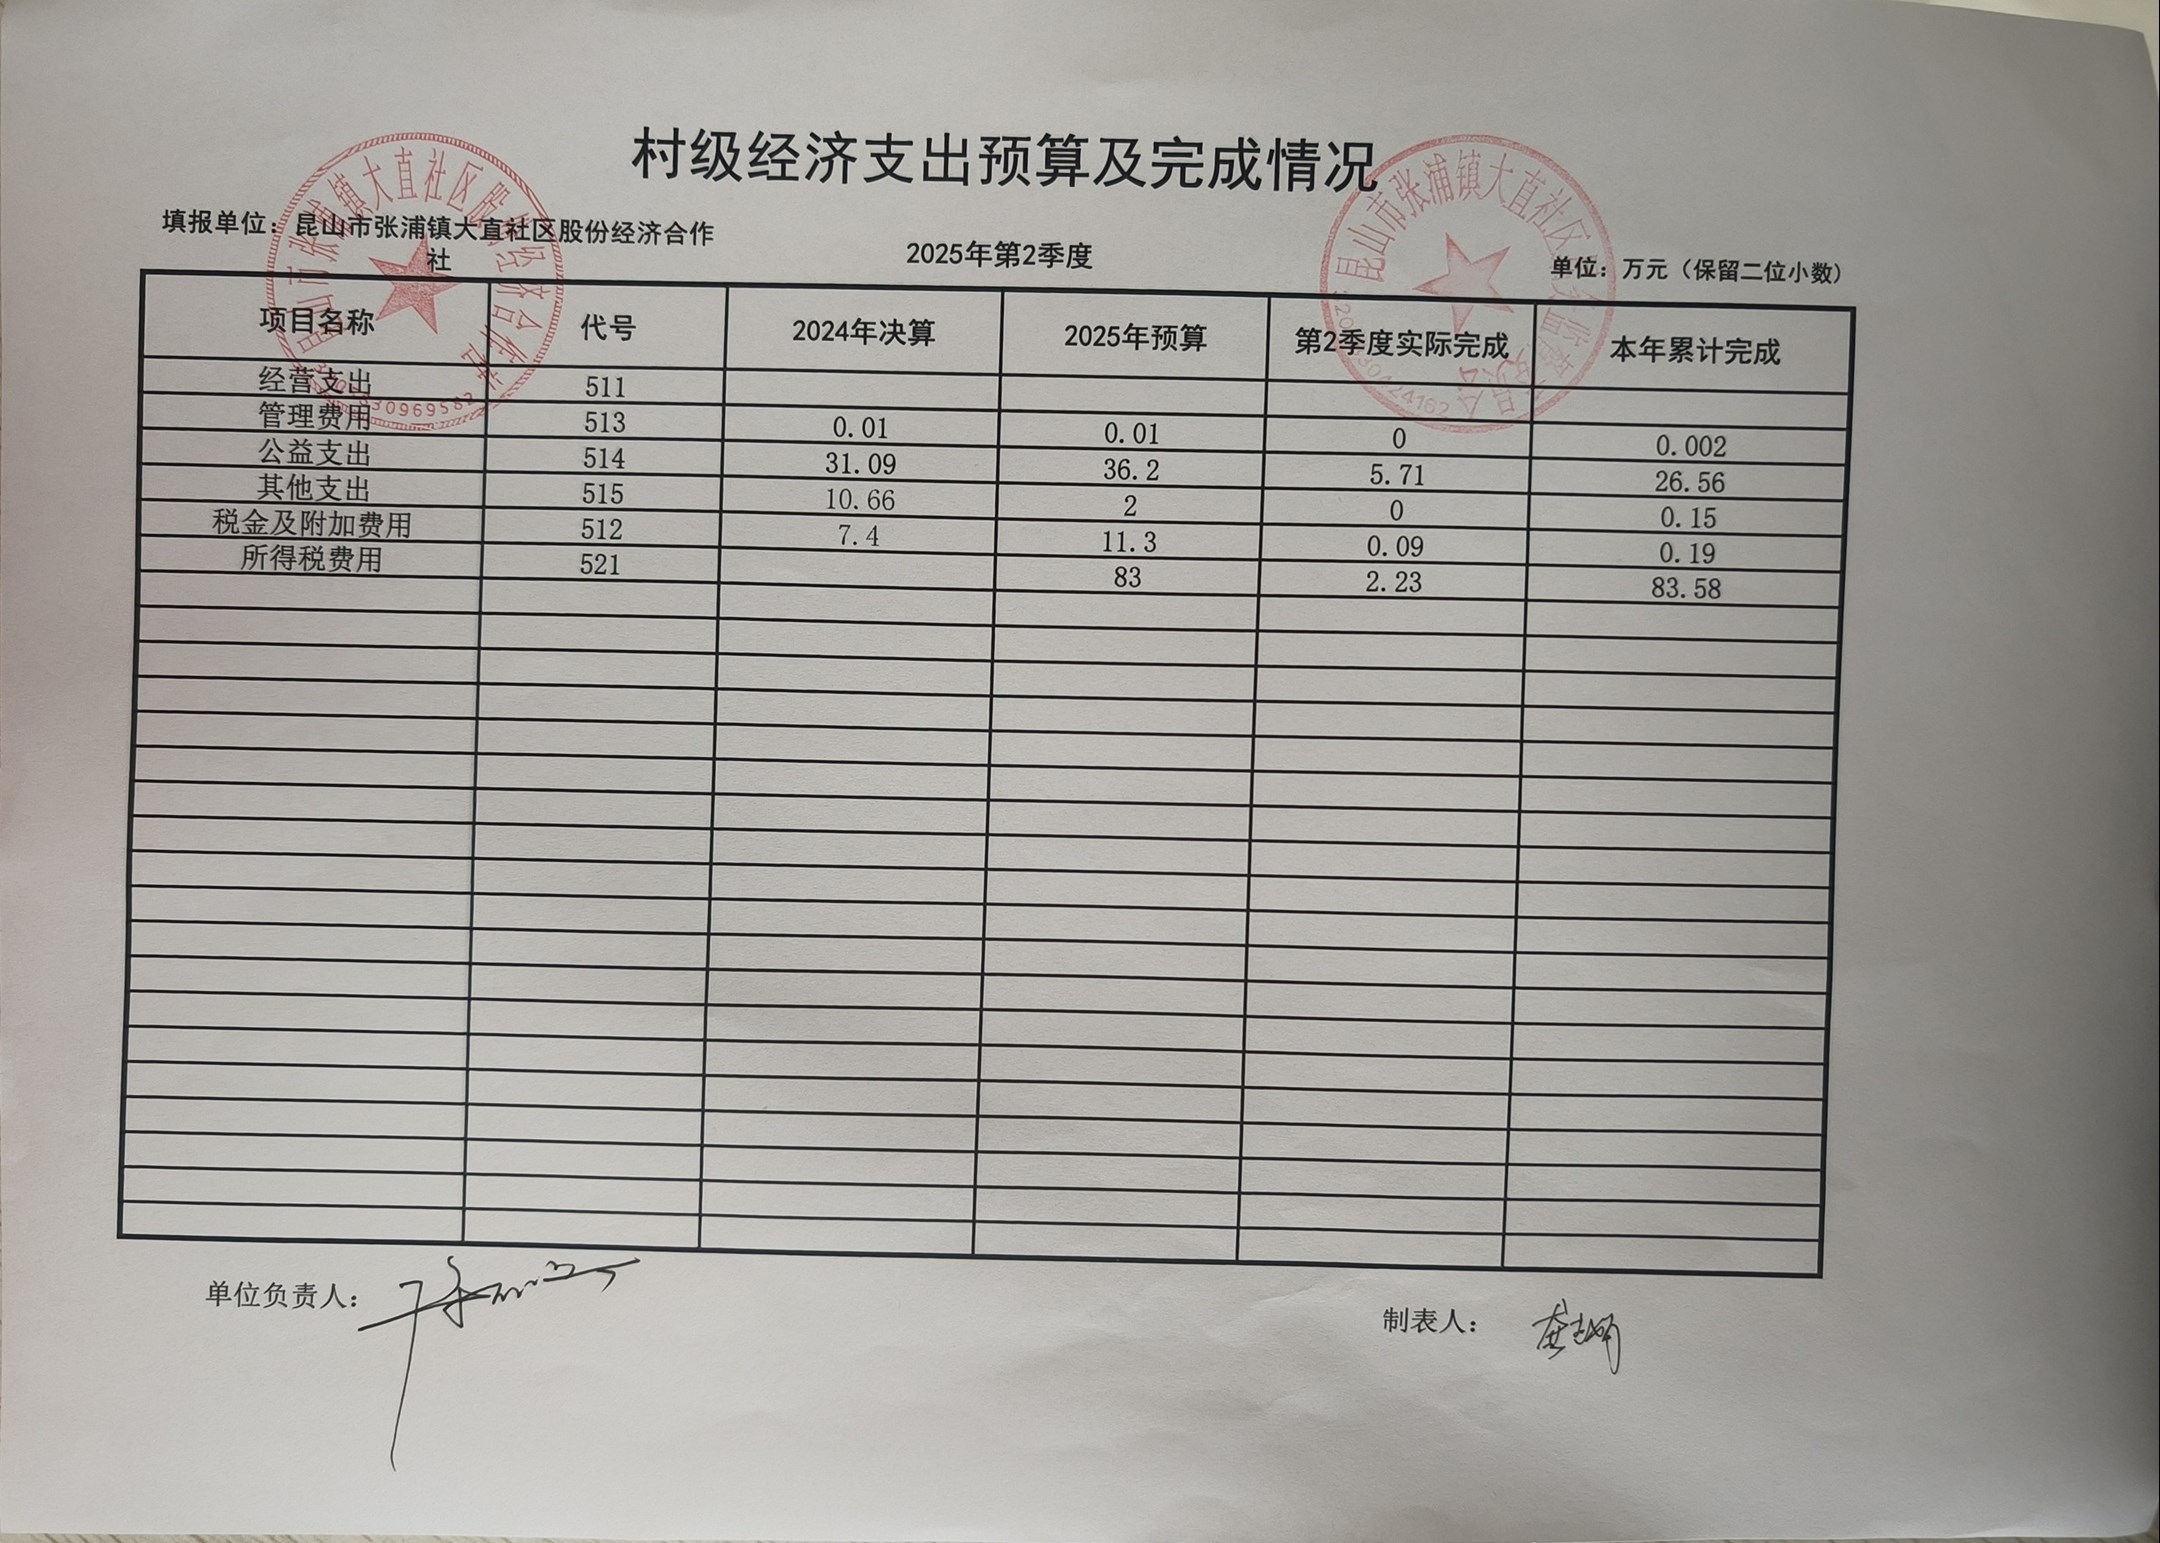 村级经济支出预算及完成情况
填报单位：昆山市张浦镇大直社区股份经济合作
社
2025年第2季度
单位：万元（保留二位小数）
项目名称 代号 2024年决算 2025年预算 第2季度实际完成 本年累计完成
经营支出 511
管理费用 513 0.01 0.01 0 0.002
公益支出 514 31.09 36.2 5.71 26.56
其他支出 515 10.66 2 0 0.15
税金及附加费用 512 7.4 11.3 0.09 0.19
所得税费用 521 83 2.23 83.58
单位负责人：
制表人：
昆山市张浦镇大直社区股份经济合作社
昆山市张浦镇大直社区